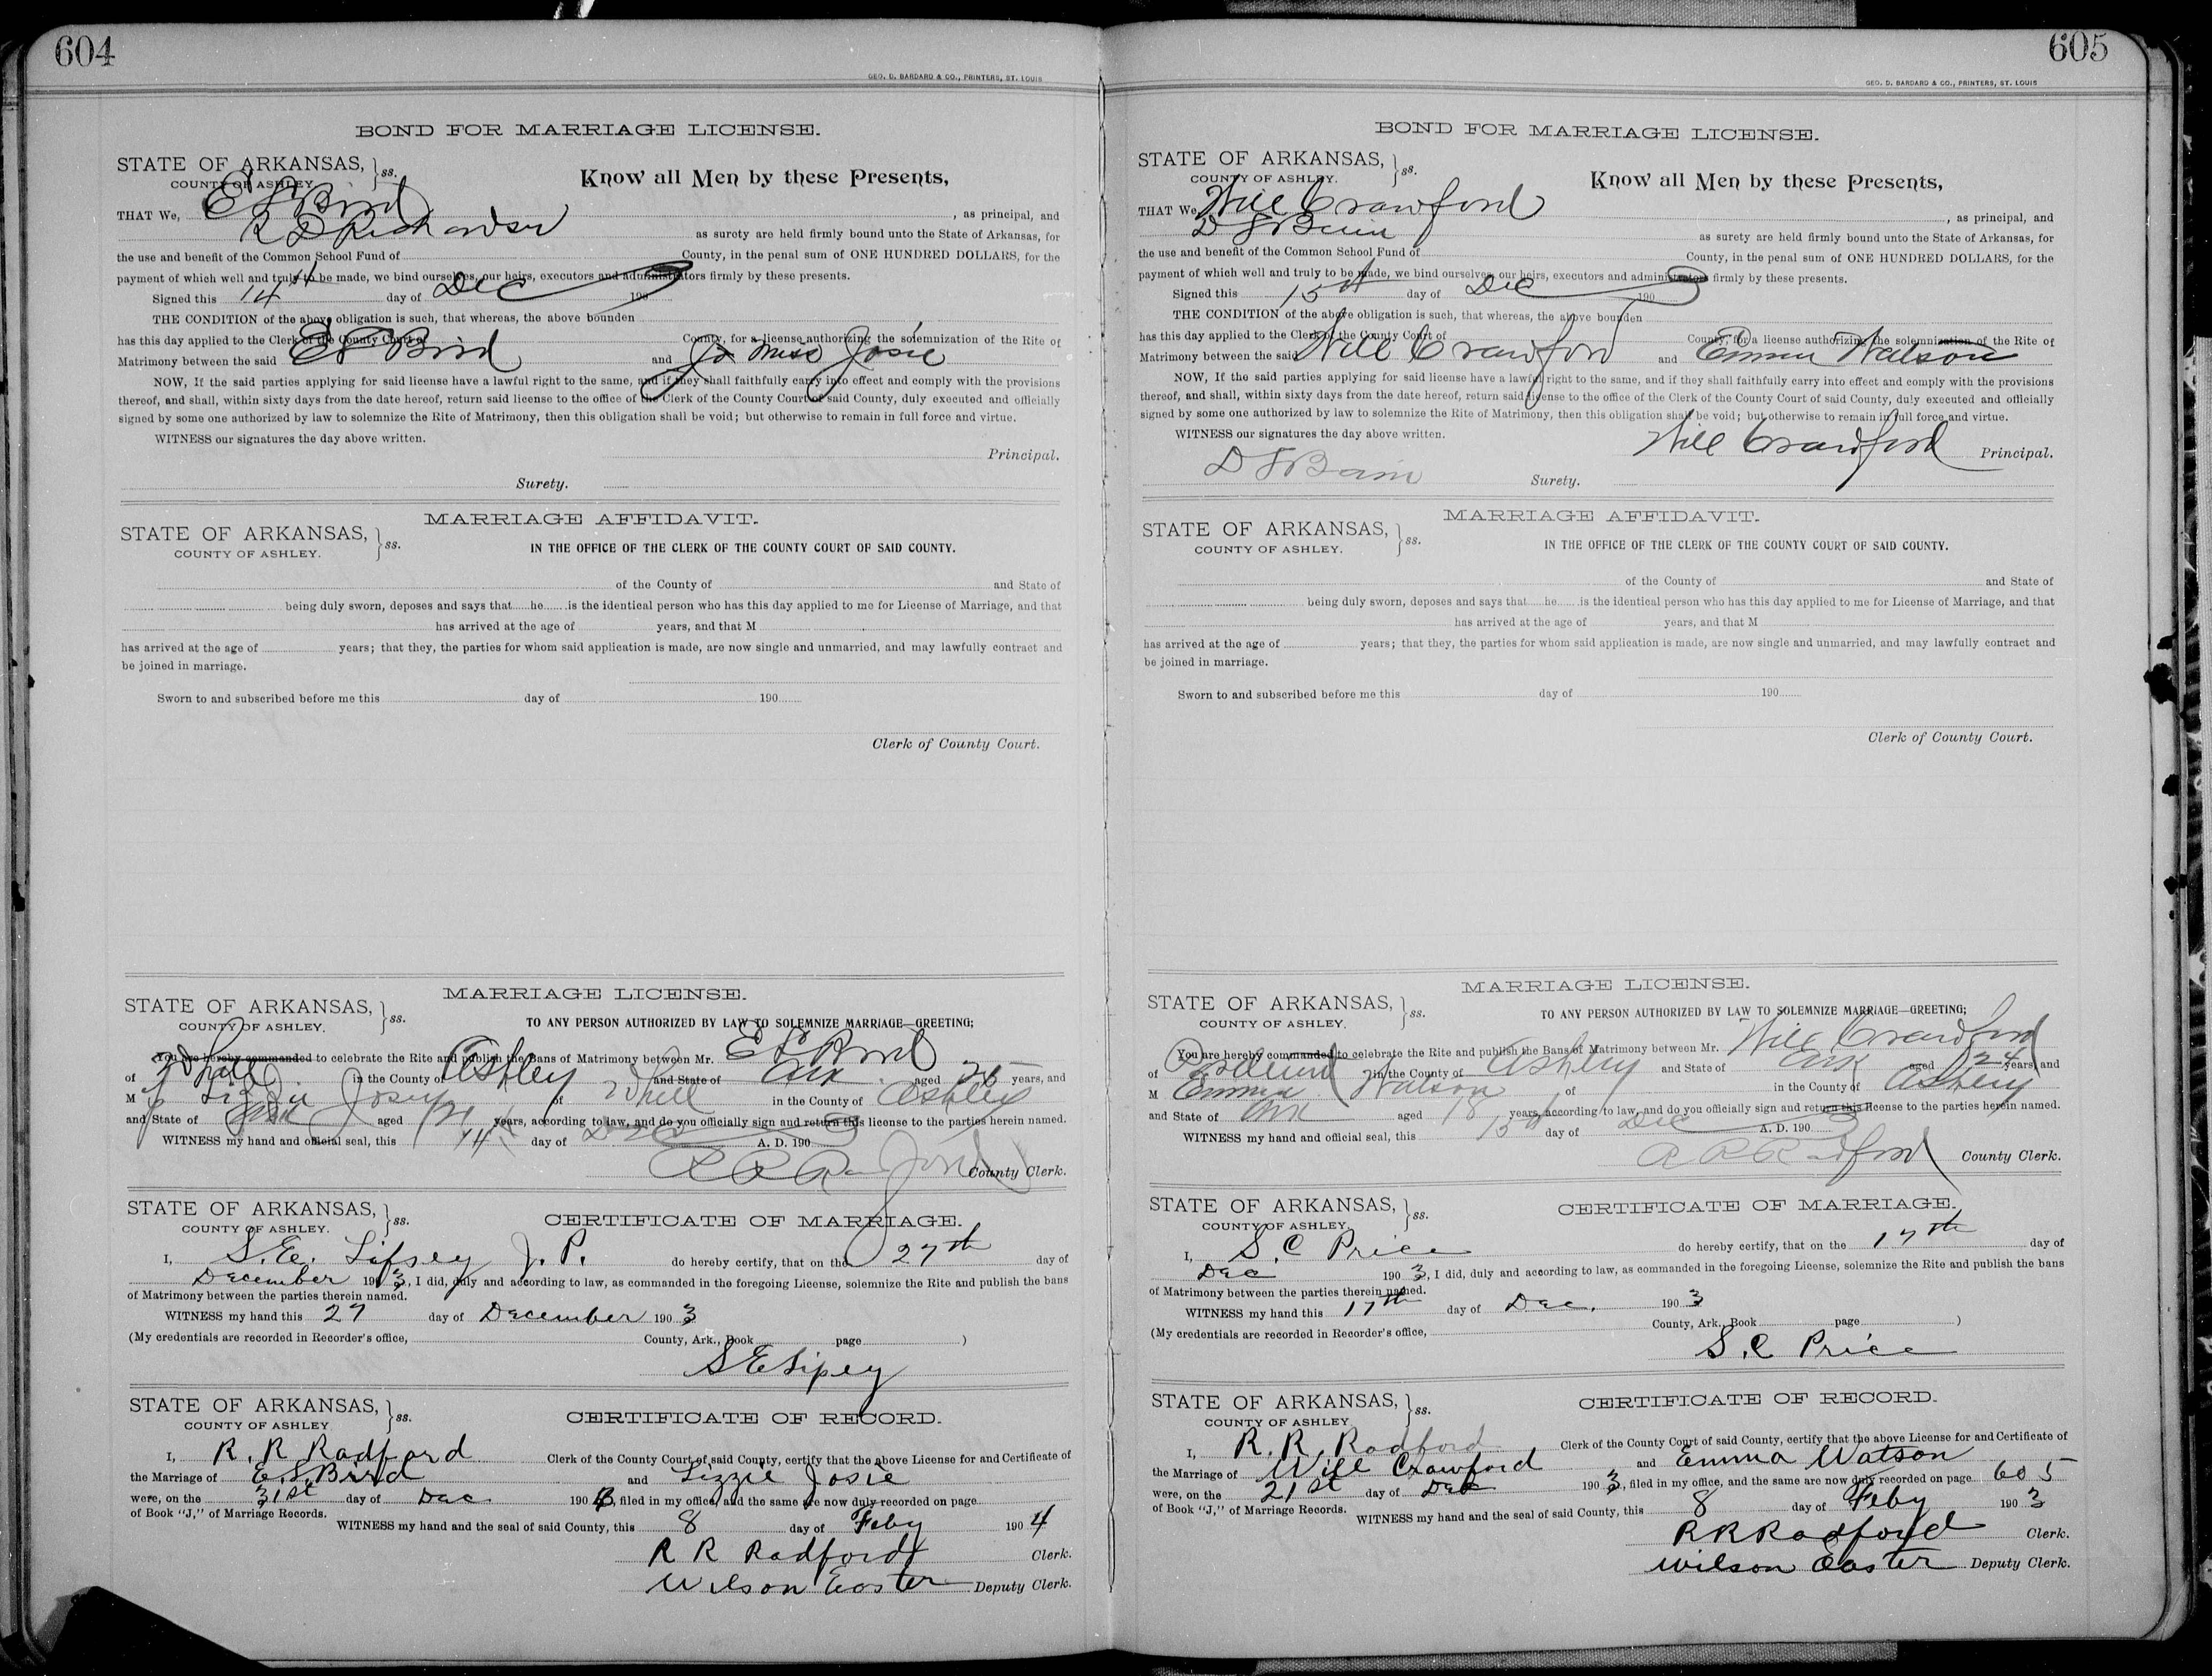 604
GEO. D. BARDARD & CO., PRINTERS, ST. LOUIS
BOND FOR MARRIAGE LICENSE.
STATE OF ARKANSAS, } ss.
COUNTY OF ASHLEY.
Know all Men by these Presents,
THAT We, E S Bird, as principal, and
R D Richardson as surety are held firmly bound unto the State of Arkansas, for
the use and benefit of the Common School Fund of County, in the penal sum of ONE HUNDRED DOLLARS, for the
payment of which well and truly to be made, we bind ourselves, our heirs, executors and administrators firmly by these presents.
Signed this 14th day of Dec 1903
THE CONDITION of the above obligation is such, that whereas, the above bounden
has this day applied to the Clerk of the County Court of County, for a license authorizing the solemnization of the Rite of
Matrimony between the said E S Bird and Miss Josie
NOW, If the said parties applying for said license have a lawful right to the same, and if they shall faithfully carry into effect and comply with the provisions
thereof, and shall, within sixty days from the date hereof, return said license to the office of the Clerk of the County Court of said County, duly executed and officially
signed by some one authorized by law to solemnize the Rite of Matrimony, then this obligation shall be void; but otherwise to remain in full force and virtue.
WITNESS our signatures the day above written.
Principal.
Surety.
MARRIAGE AFFIDAVIT.
STATE OF ARKANSAS, } ss.
COUNTY OF ASHLEY.
IN THE OFFICE OF THE CLERK OF THE COUNTY COURT OF SAID COUNTY.
of the County of and State of
being duly sworn, deposes and says that he is the identical person who has this day applied to me for License of Marriage, and that
has arrived at the age of years, and that M
has arrived at the age of years; that they, the parties for whom said application is made, are now single and unmarried, and may lawfully contract and
be joined in marriage.
Sworn to and subscribed before me this day of 190
Clerk of County Court.
MARRIAGE LICENSE.
STATE OF ARKANSAS, } ss.
COUNTY OF ASHLEY.
TO ANY PERSON AUTHORIZED BY LAW TO SOLEMNIZE MARRIAGE—GREETING;
You are hereby commanded to celebrate the Rite and publish the Bans of Matrimony between Mr. E S Bird
of in the County of Ashley and State of Ark aged years, and
M Lizzie Josey of in the County of Ashley
and State of Ark aged 21 years, according to law, and do you officially sign and return this license to the parties herein named.
WITNESS my hand and official seal, this 14 day of Dec A. D. 1903
R R Radford County Clerk.
STATE OF ARKANSAS, } ss.
COUNTY OF ASHLEY.
CERTIFICATE OF MARRIAGE.
I, S. E. Lipsey J. P. do hereby certify, that on the 27th day of
December 1903, I did, duly and according to law, as commanded in the foregoing License, solemnize the Rite and publish the bans
of Matrimony between the parties therein named.
WITNESS my hand this 27 day of December 1903
(My credentials are recorded in Recorder's office, County, Ark., Book page )
S E Lipsey
STATE OF ARKANSAS, } ss.
COUNTY OF ASHLEY
CERTIFICATE OF RECORD.
I, R. R Radford Clerk of the County Court of said County, certify that the above License for and Certificate of
the Marriage of E. S. Bird and Lizzie Josie
were, on the 31st day of Dec 1903, filed in my office, and the same are now duly recorded on page
of Book "J," of Marriage Records.
WITNESS my hand and the seal of said County, this 8 day of Feby 1904
R R Radford Clerk.
Wilson Easter Deputy Clerk.
605
GEO. D. BARDARD & CO., PRINTERS, ST. LOUIS
BOND FOR MARRIAGE LICENSE.
STATE OF ARKANSAS, } ss.
COUNTY OF ASHLEY.
Know all Men by these Presents,
THAT We Will Crawford, as principal, and
D S Bain as surety are held firmly bound unto the State of Arkansas, for
the use and benefit of the Common School Fund of County, in the penal sum of ONE HUNDRED DOLLARS, for the
payment of which well and truly to be made, we bind ourselves, our heirs, executors and administrators firmly by these presents.
Signed this 15th day of Dec 1903
THE CONDITION of the above obligation is such, that whereas, the above bounden
has this day applied to the Clerk of the County Court of County, for a license authorizing the solemnization of the Rite of
Matrimony between the said Will Crawford and Emma Watson
NOW, If the said parties applying for said license have a lawful right to the same, and if they shall faithfully carry into effect and comply with the provisions
thereof, and shall, within sixty days from the date hereof, return said license to the office of the Clerk of the County Court of said County, duly executed and officially
signed by some one authorized by law to solemnize the Rite of Matrimony, then this obligation shall be void; but otherwise to remain in full force and virtue.
WITNESS our signatures the day above written.
Will Crawford Principal.
D S Bain Surety.
MARRIAGE AFFIDAVIT.
STATE OF ARKANSAS, } ss.
COUNTY OF ASHLEY.
IN THE OFFICE OF THE CLERK OF THE COUNTY COURT OF SAID COUNTY.
of the County of and State of
being duly sworn, deposes and says that he is the identical person who has this day applied to me for License of Marriage, and that
has arrived at the age of years, and that M
has arrived at the age of years; that they, the parties for whom said application is made, are now single and unmarried, and may lawfully contract and
be joined in marriage.
Sworn to and subscribed before me this day of 190
Clerk of County Court.
MARRIAGE LICENSE.
STATE OF ARKANSAS, } ss.
COUNTY OF ASHLEY.
TO ANY PERSON AUTHORIZED BY LAW TO SOLEMNIZE MARRIAGE—GREETING;
You are hereby commanded to celebrate the Rite and publish the Bans of Matrimony between Mr. Will Crawford
of in the County of Ashley and State of Ark aged 24 years, and
M Emma Watson of in the County of Ashley
and State of Ark aged 18 years, according to law, and do you officially sign and return this license to the parties herein named.
WITNESS my hand and official seal, this 15th day of Dec A. D. 1903
R R Radford County Clerk.
STATE OF ARKANSAS, } ss.
COUNTY OF ASHLEY.
CERTIFICATE OF MARRIAGE.
I, S. C Price do hereby certify, that on the 17th day of
Dec 1903, I did, duly and according to law, as commanded in the foregoing License, solemnize the Rite and publish the bans
of Matrimony between the parties therein named.
WITNESS my hand this 17th day of Dec. 1903
(My credentials are recorded in Recorder's office, County, Ark., Book page )
S. C Price
STATE OF ARKANSAS, } ss.
COUNTY OF ASHLEY
CERTIFICATE OF RECORD.
I, R. R. Radford Clerk of the County Court of said County, certify that the above License for and Certificate of
the Marriage of Will Crawford and Emma Watson
were, on the 21st day of Dec 1903, filed in my office, and the same are now duly recorded on page 605
of Book "J," of Marriage Records.
WITNESS my hand and the seal of said County, this 8 day of Feby 1903
R R Radford Clerk.
Wilson Easter Deputy Clerk.